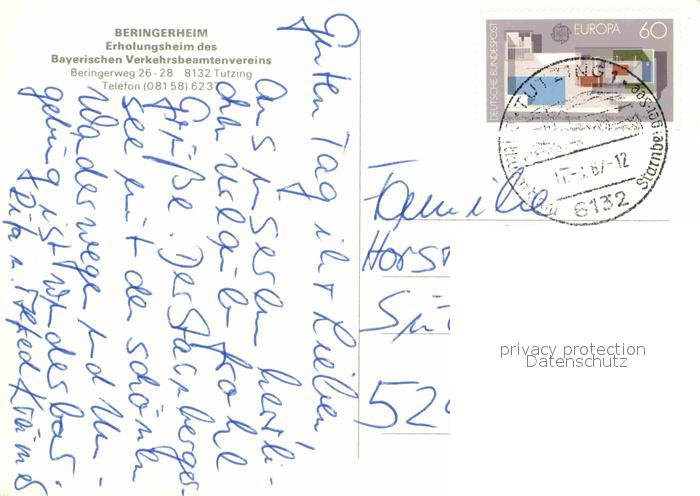 BERINGERHEIM
Erholungsheim des
Bayerischen Verkehrsbeamtenvereins
Beringerweg 26 - 28 8132 Tutzing
Telefon (081 58) 623
Guten Tag ihr Lieben
Aus unseren herrli-
chen Urlaub frohe
Grüße. Der Starnberger-
see mit den schönen
Wanderwegen und Um-
gebung ist wunderbar
Rita u.
DEUTSCHE BUNDESPOST
EUROPA 60
TUTZING
Starnberger See
87-12
8132
Familie
Horst
52
privacy protection
Datenschutz